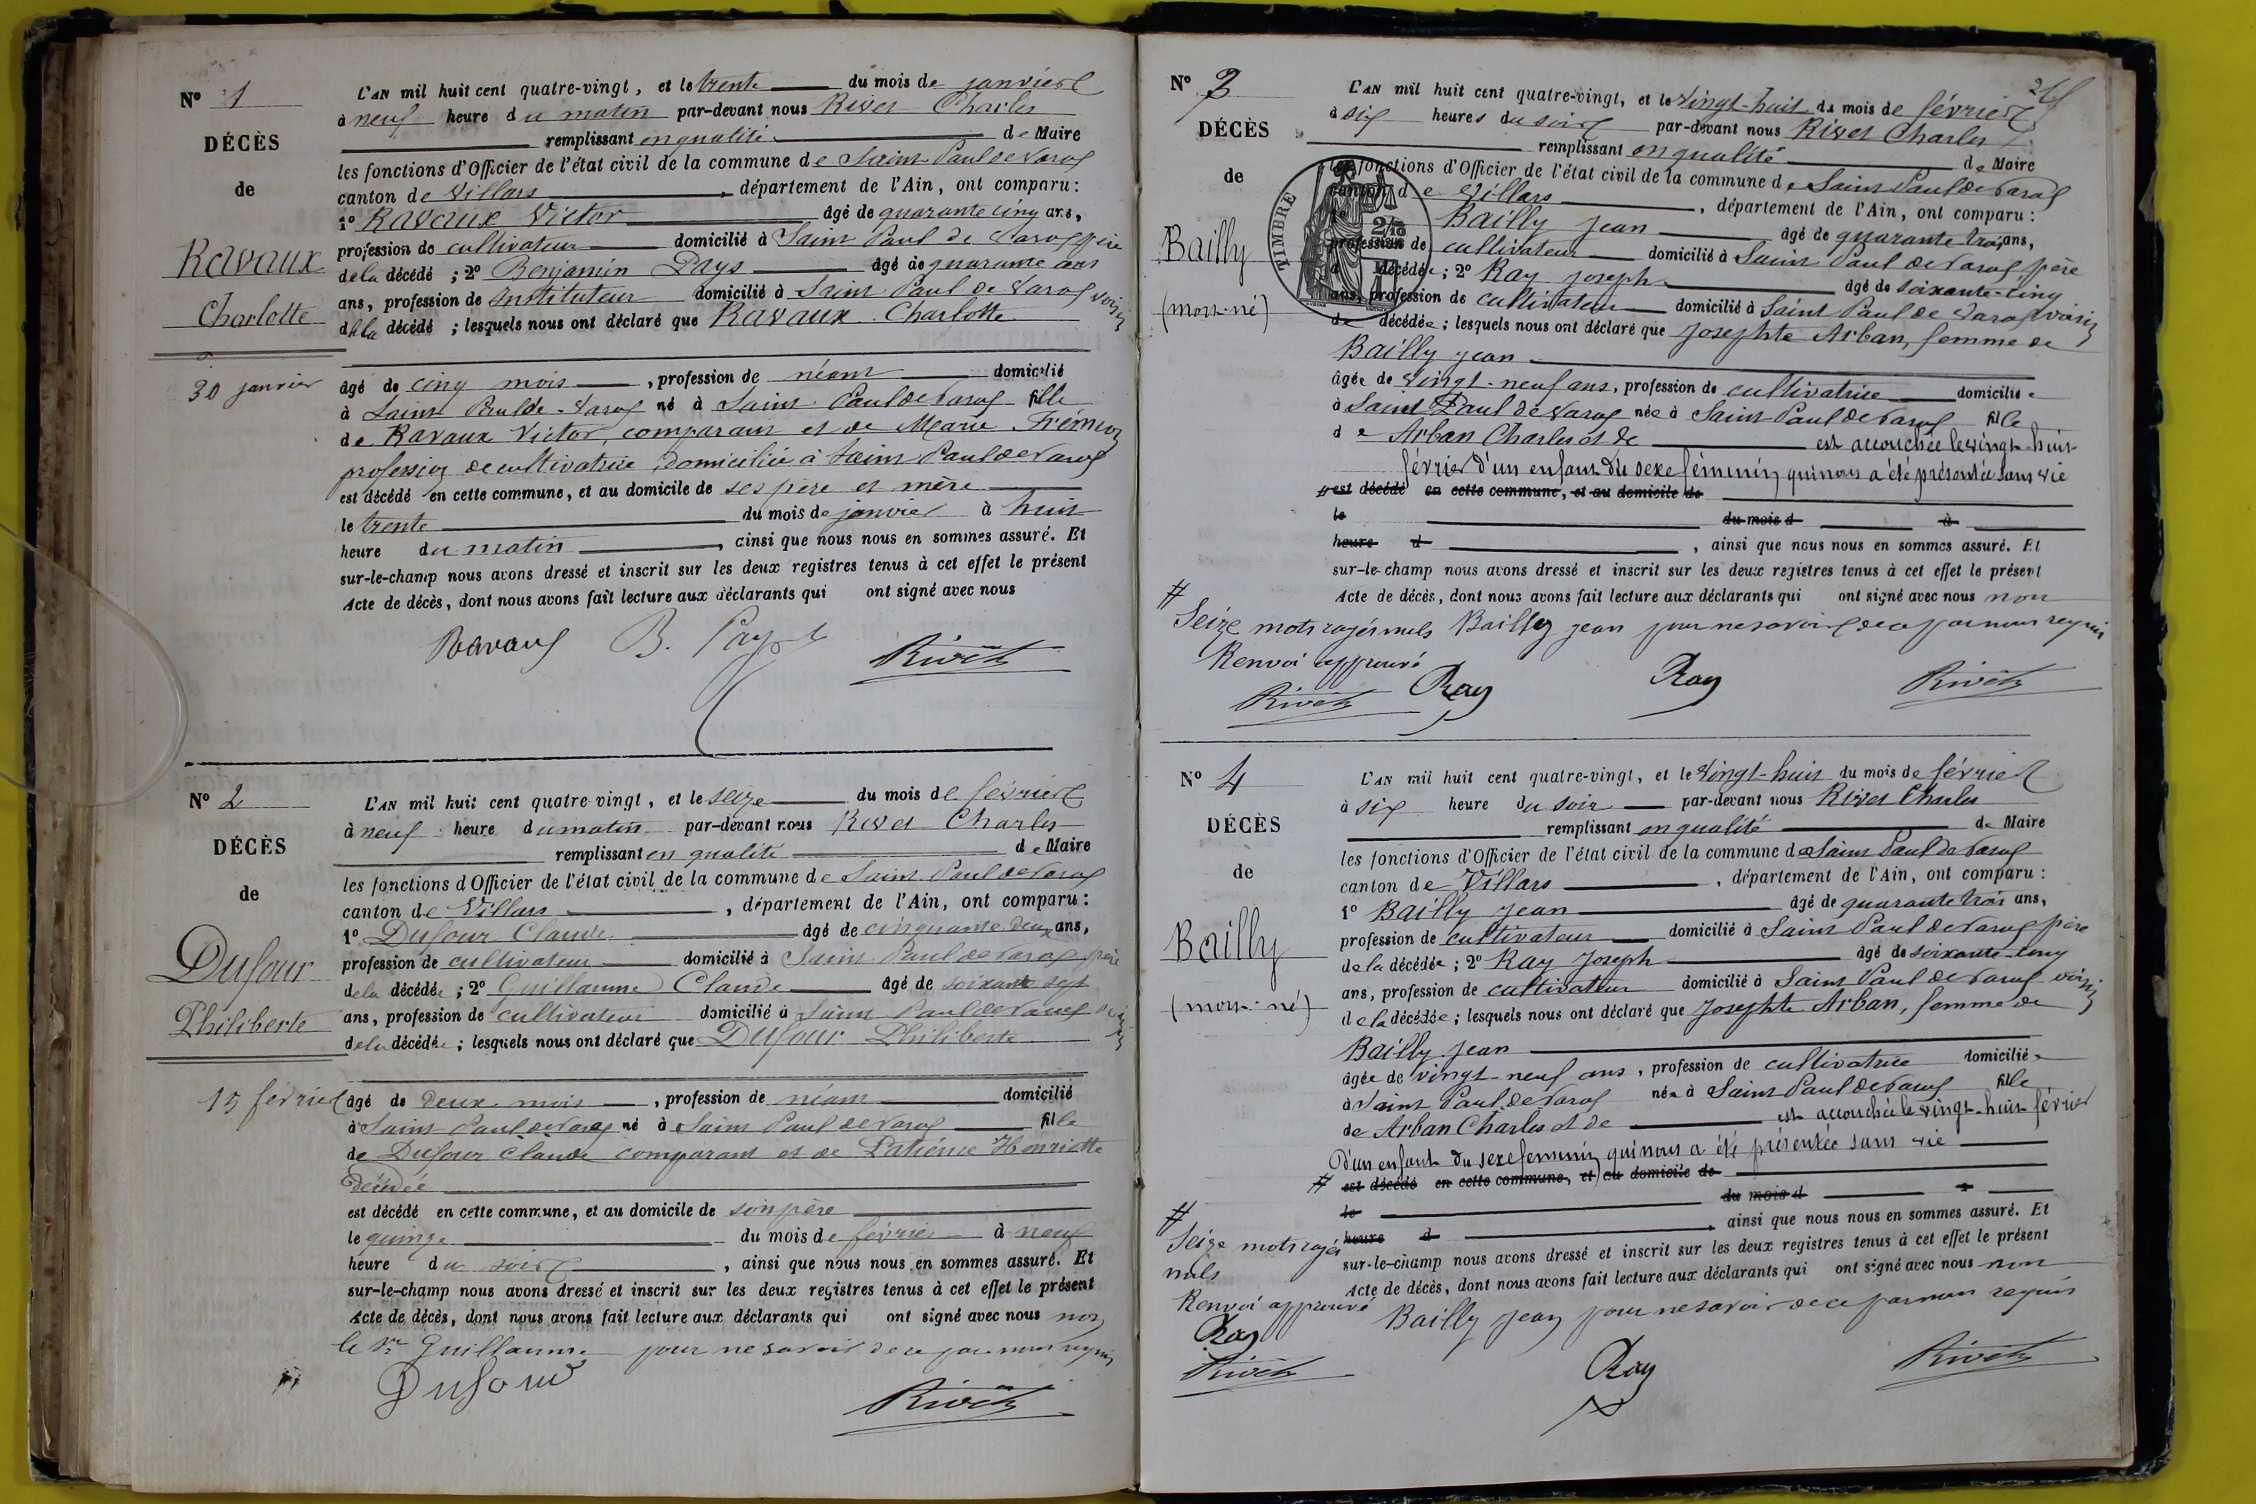 N° 1
DÉCÈS
de
Ravaux
Charlotte
30 janvier
L'AN mil huit cent quatre-vingt, et le trente du mois de janvier
à neuf heure du matin par-devant nous Rivet Charles
remplissant en qualité de Maire
les fonctions d'Officier de l'état civil de la commune de Saint Paul de Varax
canton de Villars, département de l'Ain, ont comparu :
1° Ravaux Victor âgé de quarante cinq ans,
profession de cultivateur domicilié à Saint Paul de Varax père
de la décédé ; 2° Benjamin Pays âgé de quarante ans
ans, profession de Instituteur domicilié à Saint Paul de Varax voisin
de la décédé ; lesquels nous ont déclaré que Ravaux Charlotte
âgé de cinq mois, profession de néant domicilié
à Saint Paul de Varax né à Saint Paul de Varax fille
de Ravaux Victor, comparant et de Marie
profession de cultivatrice, domiciliée à Saint Paul de Varax
est décédé en cette commune, et au domicile de ses père et mère
le trente du mois de janvier à huit
heure du matin, ainsi que nous nous en sommes assuré. Et
sur-le-champ nous avons dressé et inscrit sur les deux registres tenus à cet effet le présent
Acte de décès, dont nous avons fait lecture aux déclarants qui ont signé avec nous
Ravaux B. Pays Rivet
N° 2
DÉCÈS
de
Dufour
Philiberte
15 février
L'AN mil huit cent quatre-vingt, et le seize du mois de février
à neuf heure du matin par-devant nous Rivet Charles
remplissant en qualité de Maire
les fonctions d'Officier de l'état civil de la commune de Saint Paul de Varax
canton de Villars, département de l'Ain, ont comparu :
1° Dufour Claude âgé de cinquante deux ans,
profession de cultivateur domicilié à Saint Paul de Varax père
de la décédée ; 2° Guillaume Claude âgé de soixante sept
ans, profession de cultivateur domicilié à Saint Paul de Varax voisin
de la décédée ; lesquels nous ont déclaré que Dufour Philiberte
âgé de deux mois, profession de néant domicilié
à Saint Paul de Varax né à Saint Paul de Varax fille
de Dufour Claude comparant et de Patience Henriette
décédée
est décédé en cette commune, et au domicile de son père
le quinze du mois de février à neuf
heure du soir, ainsi que nous nous en sommes assuré. Et
sur-le-champ nous avons dressé et inscrit sur les deux registres tenus à cet effet le présent
Acte de décès, dont nous avons fait lecture aux déclarants qui ont signé avec nous non
le Sr Guillaume pour ne savoir de ce par nous requis
Dufour Rivet
N° 3
DÉCÈS
de
Bailly
(mort-né)
TIMBRE
L'AN mil huit cent quatre-vingt, et le vingt-huit du mois de février
à six heures du soir par-devant nous Rivet Charles
remplissant en qualité de Maire
les fonctions d'Officier de l'état civil de la commune de Saint Paul de Varax
canton de Villars, département de l'Ain, ont comparu :
Bailly Jean âgé de quarante trois ans,
profession de cultivateur domicilié à Saint Paul de Varax père
d décédée ; 2° Ray Joseph âgé de soixante-cinq
ans, profession de cultivateur domicilié à Saint Paul de Varax voisin
de décédée ; lesquels nous ont déclaré que Josephte Arban, femme de
Bailly Jean
âgée de vingt-neuf ans, profession de cultivatrice domiciliée
à Saint Paul de Varax née à Saint Paul de Varax fille
de Arban Charles et de est accouchée le vingt-huit
février d'un enfant du sexe féminin qui nous a été présentée sans vie
# est décédé en cette commune, et au domicile de
le du mois d à
heure d, ainsi que nous nous en sommes assuré. Et
sur-le-champ nous avons dressé et inscrit sur les deux registres tenus à cet effet le présent
Acte de décès, dont nous avons fait lecture aux déclarants qui ont signé avec nous non
Bailly Jean pour ne savoir de ce par nous requis
#
Seize mots rayés nuls
Renvoi approuvé
Rivet Ray Ray Rivet
N° 4
DÉCÈS
de
Bailly
(mort-né)
L'AN mil huit cent quatre-vingt, et le vingt-huit du mois de février
à six heure du soir par-devant nous Rivet Charles
remplissant en qualité de Maire
les fonctions d'Officier de l'état civil de la commune de Saint Paul de Varax
canton de Villars, département de l'Ain, ont comparu :
1° Bailly Jean âgé de quarante trois ans,
profession de cultivateur domicilié à Saint Paul de Varax père
de la décédée ; 2° Ray Joseph âgé de soixante-cinq
ans, profession de cultivateur domicilié à Saint Paul de Varax voisin
de la décédée ; lesquels nous ont déclaré que Josephte Arban, femme de
Bailly Jean
âgée de vingt-neuf ans, profession de cultivatrice domiciliée
à Saint Paul de Varax née à Saint Paul de Varax fille
de Arban Charles et de est accouchée le vingt-huit février
d'un enfant du sexe féminin qui nous a été présentée sans vie
# est décédé en cette commune, et au domicile de
le du mois d à
heure d, ainsi que nous nous en sommes assuré. Et
sur-le-champ nous avons dressé et inscrit sur les deux registres tenus à cet effet le présent
Acte de décès, dont nous avons fait lecture aux déclarants qui ont signé avec nous non
Bailly Jean pour ne savoir de ce par nous requis
#
Seize mots rayés
nuls
Renvoi approuvé
Ray
Rivet Ray Rivet